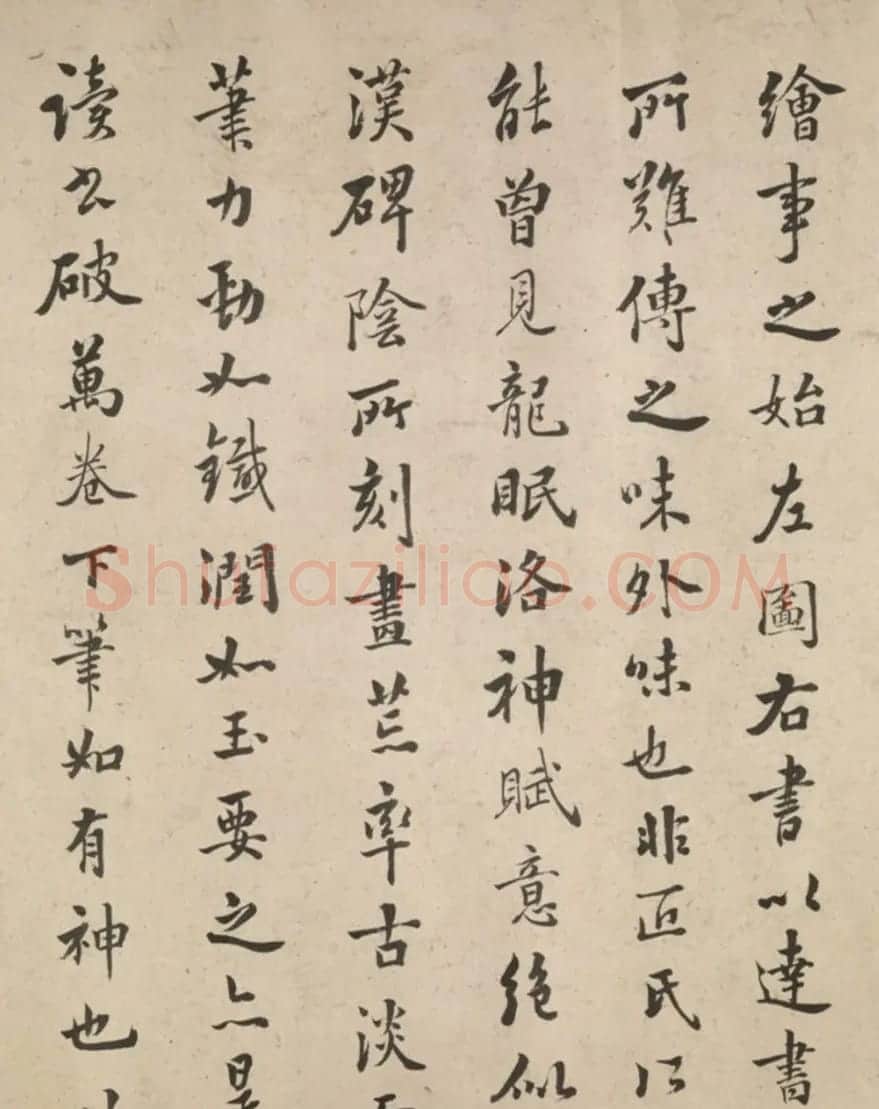 繪事之始左圖右書以達書
所難傳之味外味也非匠氏所
能曾見龍眠洛神賦意絶似
漢碑陰所刻畫荒率古淡而
葉力勁如鐵潤如玉要之亦是
读书破萬卷下筆如有神也
shufaziliao.COM